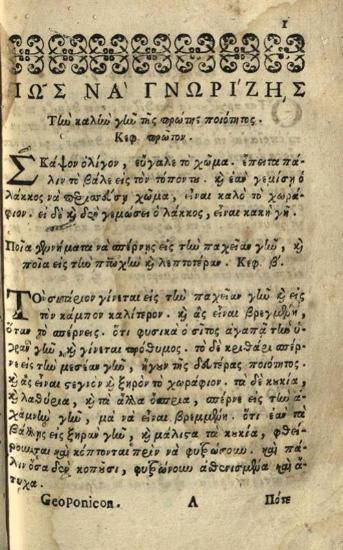 1
ΠΩΣ ΝΑ ΓΝΩΡΙΖΗΣ
Τὴν καλὴν γῆν τῆς πρώτης ποιότητος.
Κεφ. πρῶτον.
ΣΚΑΨΟΝ ὀλίγον, εὔγαλε τὸ χῶμα. ἔπειτα πά-
λιν τὸ βάλε εἰς τὸν τόπον του. καὶ ἐὰν γεμίσῃ ὁ
λάκκος νὰ χῶμα, εἶναι καλὸ τὸ χωρά-
φιον. εἰ δὲ καὶ δὲν γεμώσει ὁ λάκκος, εἶναι κακὴ γῆ.
Ποῖα γεννήματα νὰ σπέρνης εἰς τὴν παχεῖαν γῆν, καὶ
ποῖα εἰς τὴν πτωχὴν καὶ λεπτοτέραν. Κεφ. β΄.
ΤΟ σιτάριον γίνεται εἰς τὴν παχεῖαν γῆν καὶ εἰς
τὸν κάμπον καλίτερον. καὶ ἂς εἶναι βρεγμένη,
ὅταν τὸ σπέρνεις. ὅτι φυσικὰ ὁ σῖτος ἀγαπᾷ τὴν ὑ-
γρὰν γῆν, καὶ γίνεται πρόθυμος. τὸ δὲ κριθάρι σπέρ-
νε εἰς τὴν μεσέαν γῆν, ἤγουν τῆς δευτέρας ποιότητος.
καὶ ἂς εἶναι στεγνὸν καὶ ξηρὸν τὸ χωράφιον. τὰ δὲ κυκία,
καὶ λαθύρια, καὶ τὰ ἄλλα ὄσπρια, σπέρνε εἰς τὴν ἀ-
χαμνὴν γῆν, μὰ νὰ εἶναι βρεμμένη. ὅτι ἐὰν τὰ
βάλῃς εἰς ξηρὰν γῆν, καὶ μάλιστα τὰ κυκία, φθεί-
ρουνται καὶ κόπτονται πρὶν νὰ φυτρώσουν. καὶ πά-
λιν ὅσα δὲν κοποῦσι, φυτρώνουν ἀσθενισμένα καὶ ἄ-
τυχα.
Geoponicon. A Πότε